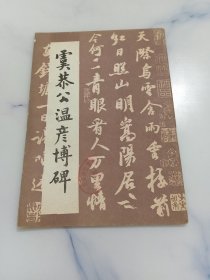 天際烏雲含雨重樓前
紅日照山明嵩陽居士
今何二青眼看人万里情
虞恭公温彦博碑